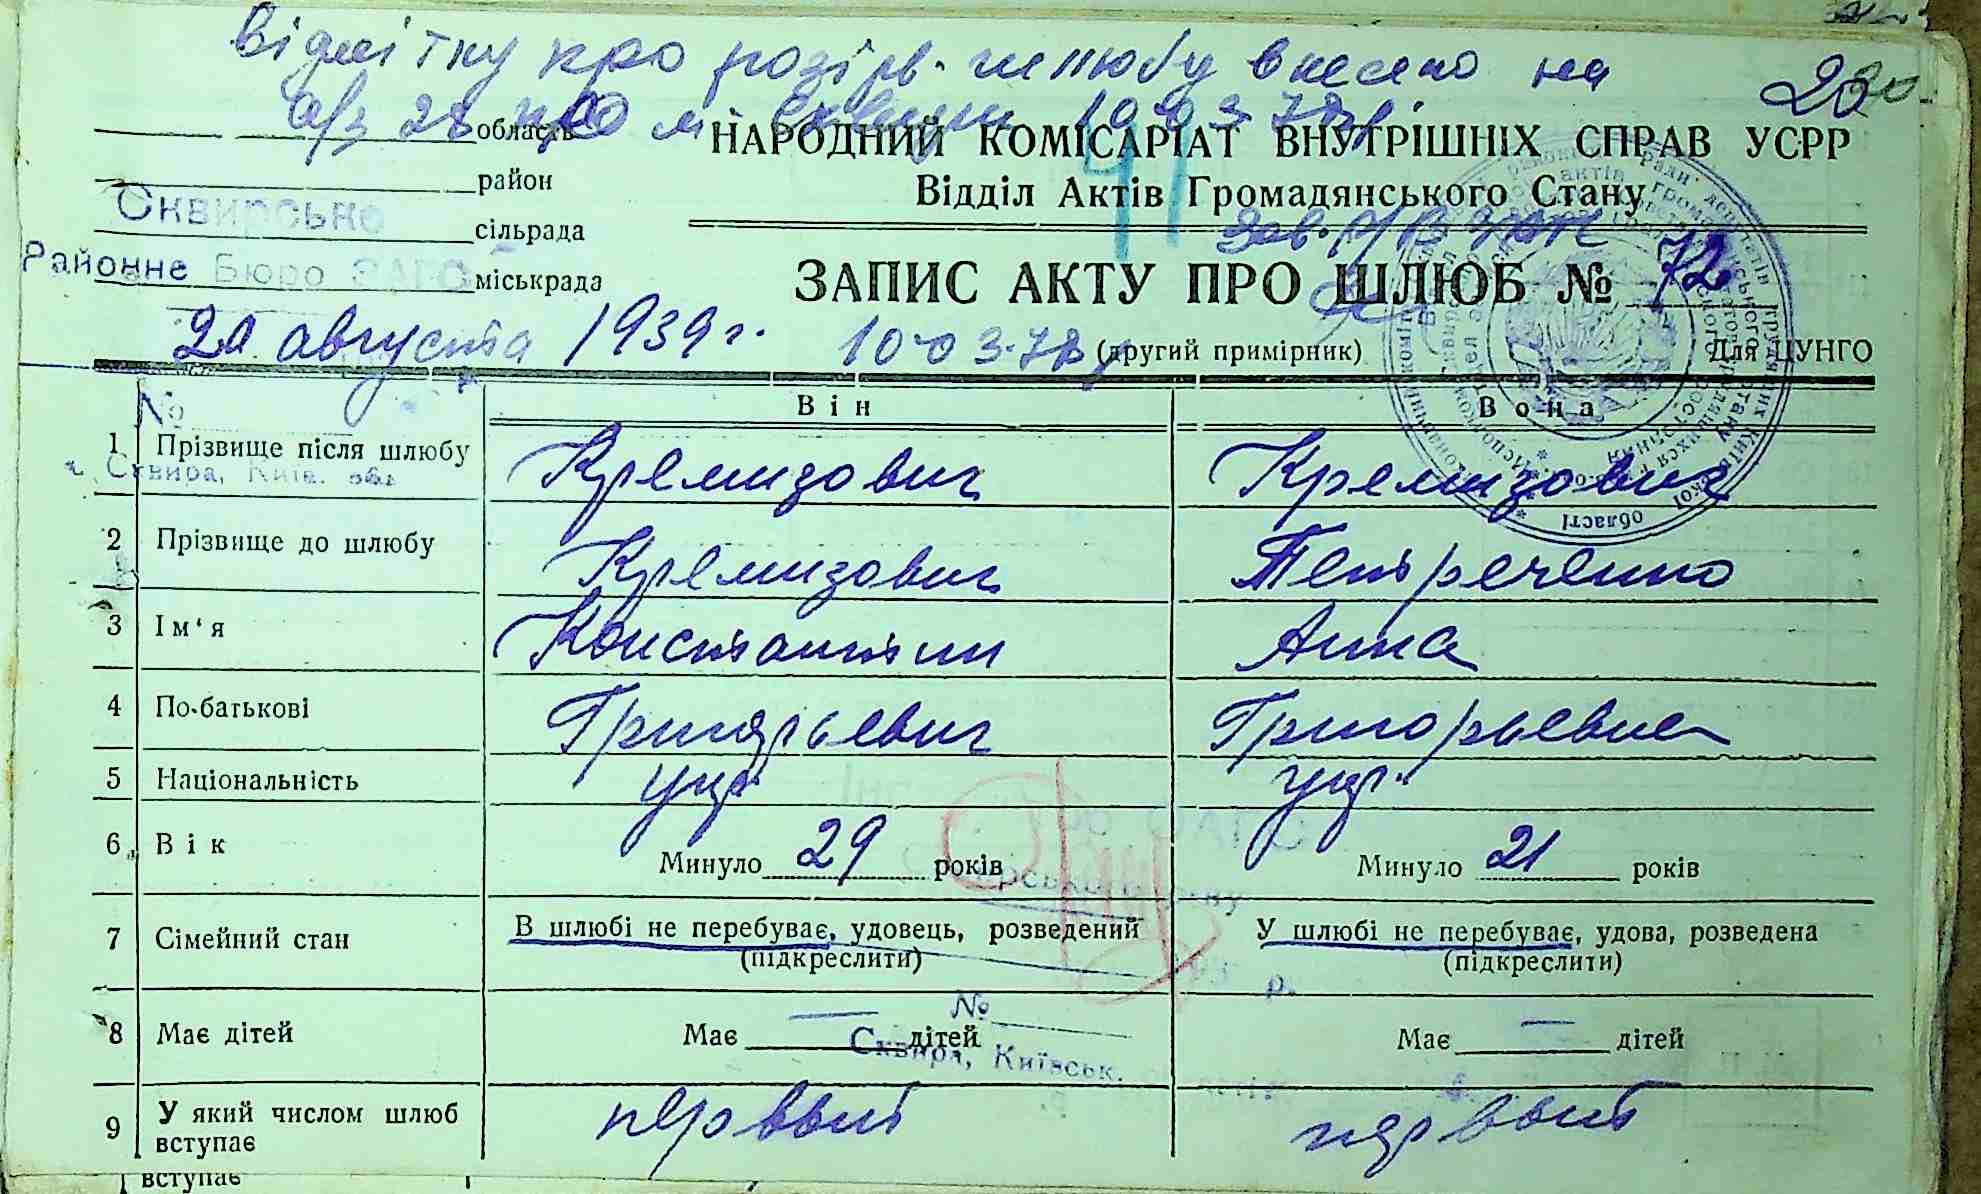 Відмітку про розірв. шлюбу внесено на
а/з 28 про м. Сквири 10.03.78р 20
область НАРОДНИЙ КОМІСАРІАТ ВНУТРІШНІХ СПРАВ УСРР
район Відділ Актів Громадянського Стану
Сквирське
сільрада Зав.
Районне Бюро ЗАГС міськрада ЗАПИС АКТУ ПРО ШЛЮБ № 72
20 августа 1939 г. 10-03.78р (другий примірник) Для ЦУНГО
№ Він Вона
1 Прізвище після шлюбу Кремизович Кремизович
Сквира, Київ. обл.
2 Прізвище до шлюбу Кремизович Петреченко
3 Ім'я Константин Анна
4 По-батькові Григорьевич Григорьевна
5 Національність укр укр.
6 Вік Минуло 29 років Минуло 21 років
7 Сімейний стан В шлюбі не перебуває, удовець, розведений У шлюбі не перебуває, удова, розведена
(підкреслити) (підкреслити)
№ р.
8 Має дітей Має — дітей Має — дітей
Сквира, Київськ.
9 У який числом шлюб вступає перввый перввый
вступає